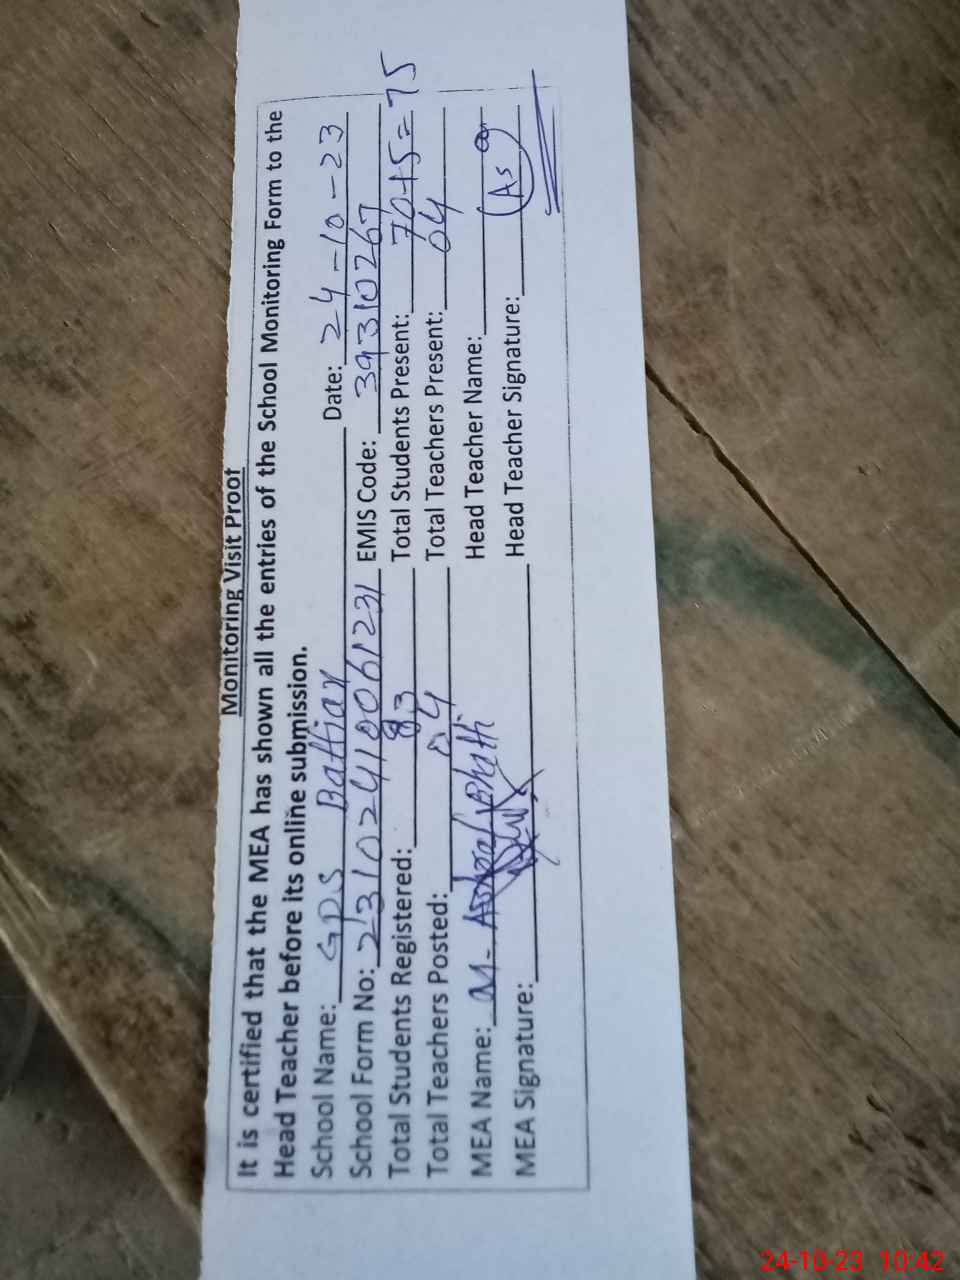 Monitoring Visit Proof
It is certified that the MEA has shown all the entries of the School Monitoring Form to the
Head Teacher before its online submission.
School Name: GPS Battian Date: 24-10-23
School Form No: 23102410061231 EMIS Code: 39310267
Total Students Registered: 83 Total Students Present: 70+5=75
Total Teachers Posted: 04 Total Teachers Present: 04
MEA Name: M. Ashraf Bhatti Head Teacher Name:
MEA Signature: Head Teacher Signature:
24-10-23 10:42